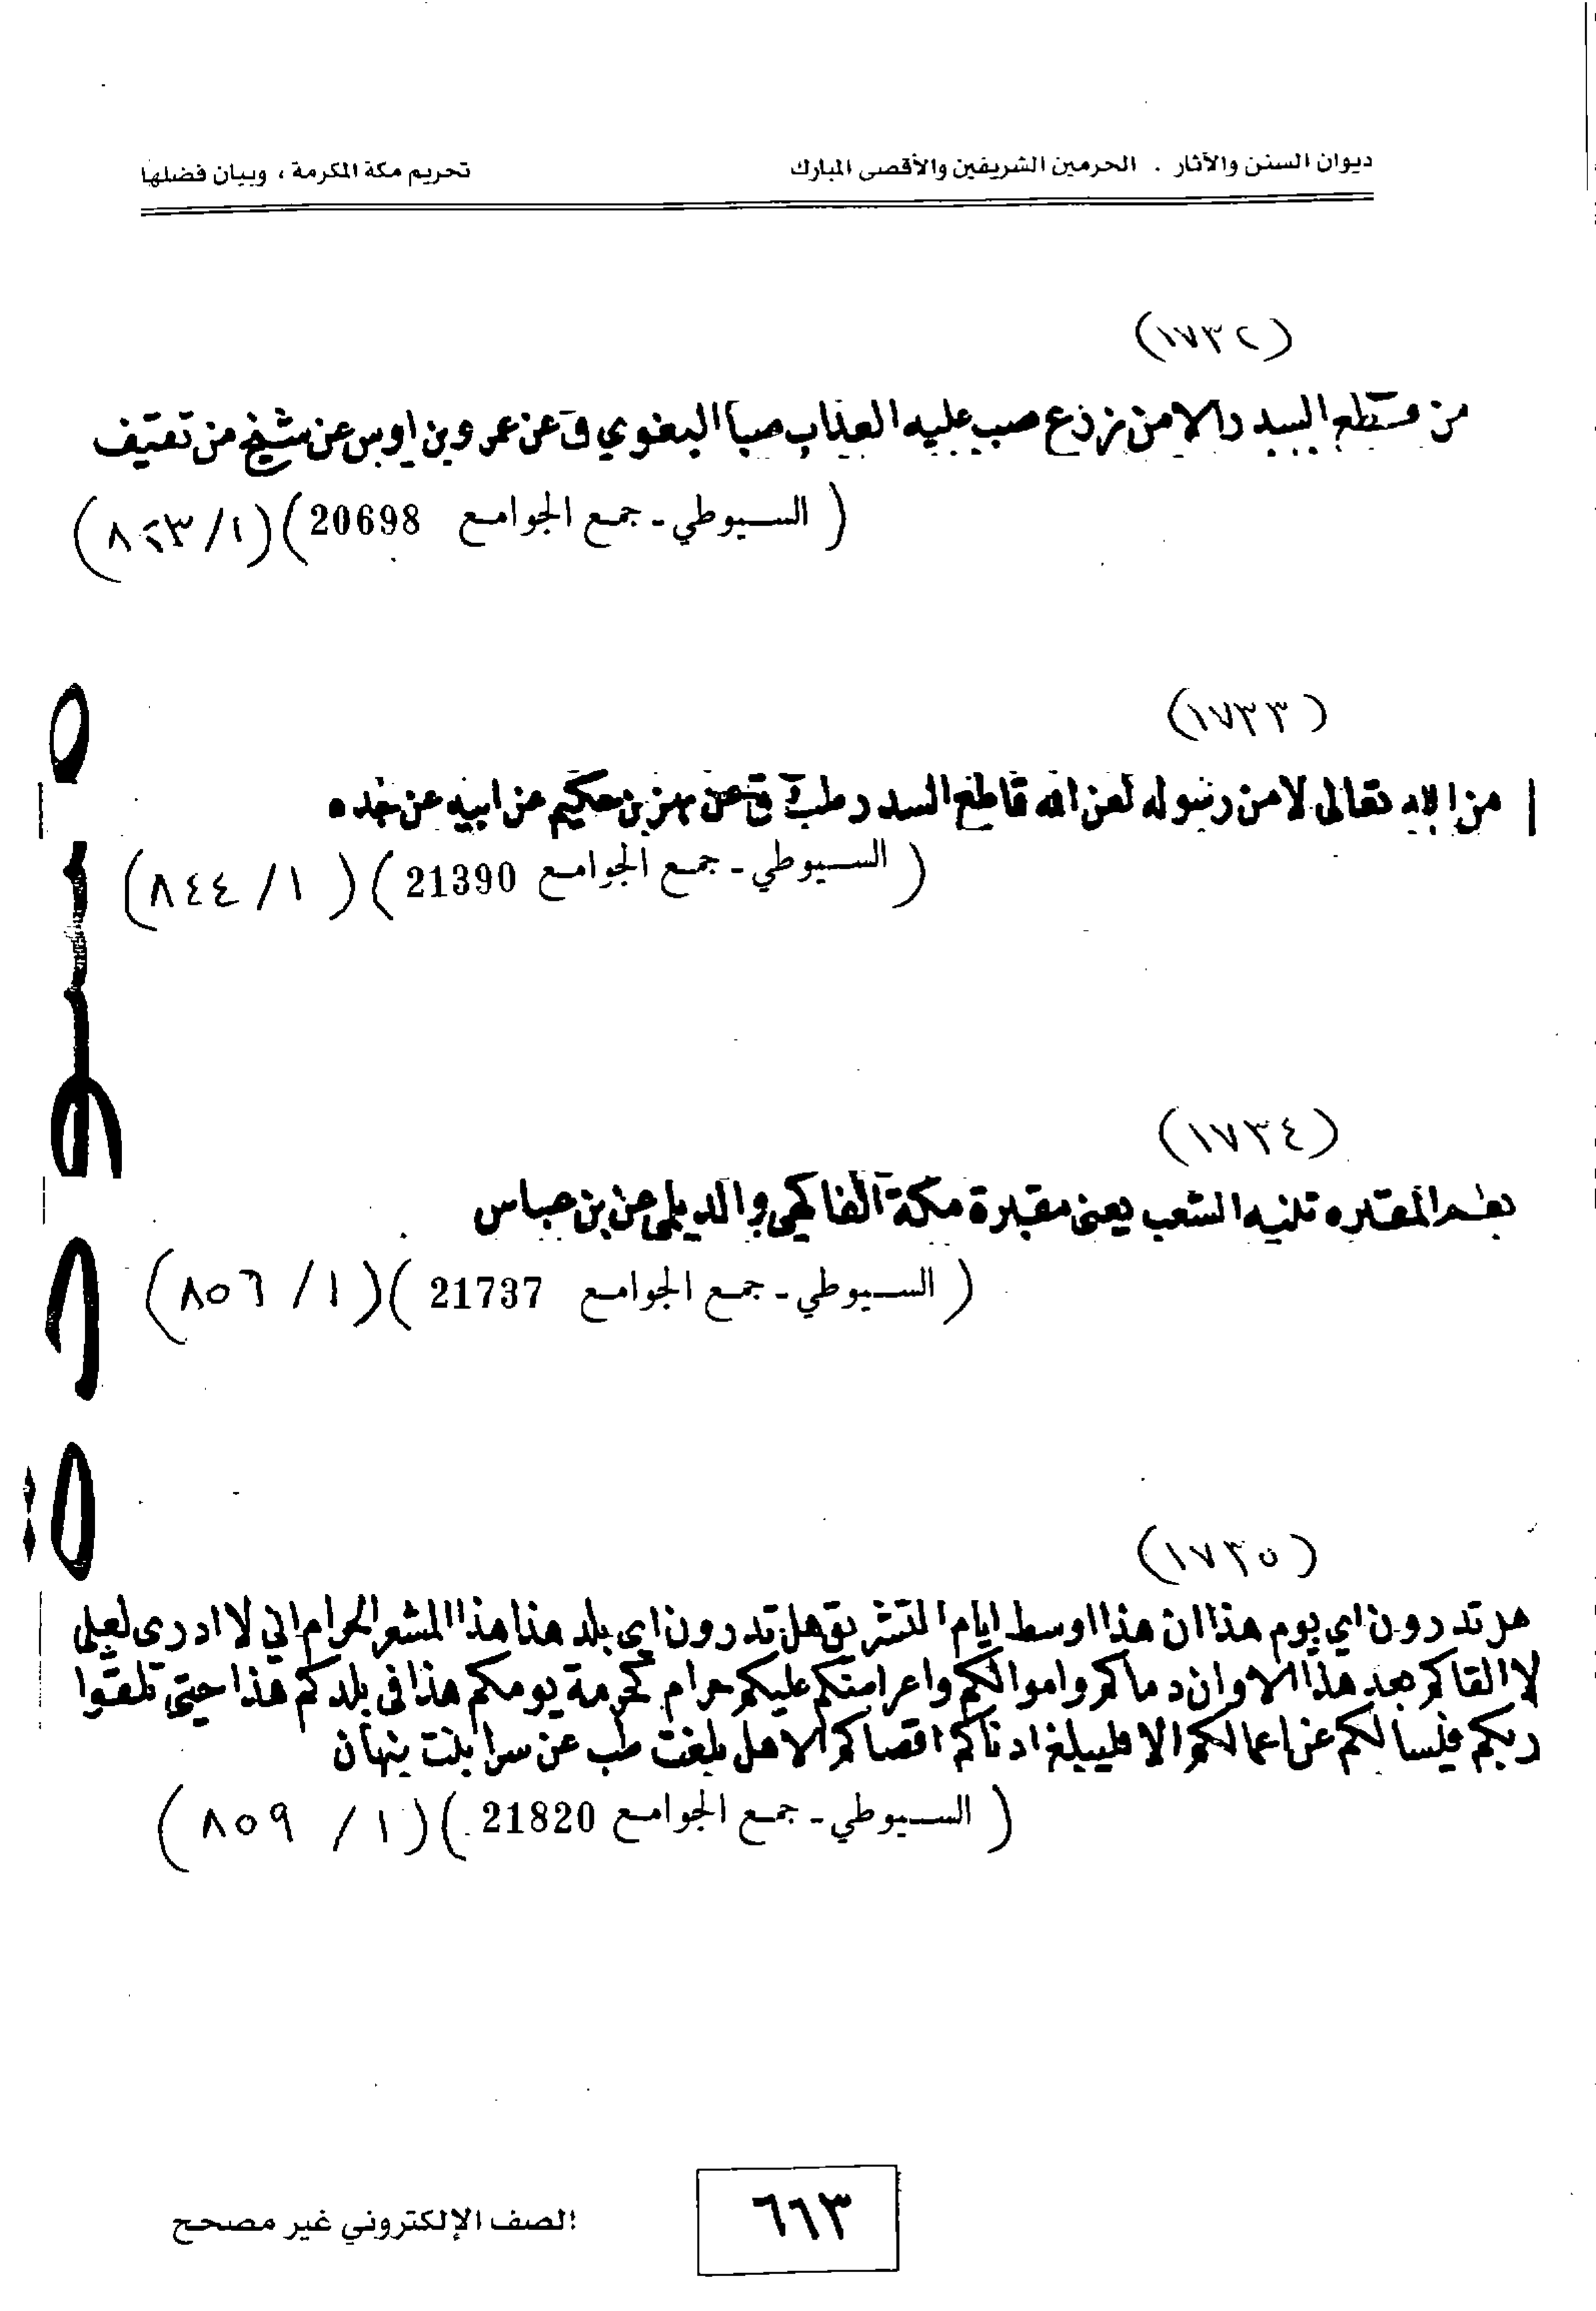 ديوان السنن والآثار . الحرمين الشريفين والأقصى المبارك
تحريم مكة المكرمة ، وبيان فضلها
(١٧٣٢)
من قطع السدر الا من زرع صب عليه العذاب صبا البغوي ق عن عمرو بن اوس عن شيخ من ثقيف
( السيوطي - جمع الجوامع 20698 ) (١/ ٨٢٣)
(١٧٣٣)
من الله تعالى لا من رسوله لعن الله قاطع السدر طب ق عن بهز بن حكيم عن ابيه عن جده
( السيوطي - جمع الجوامع 21390 ) (١/ ٨٤٤)
(١٧٣٤)
نعم المقبره الشعب يعنى مقبرة مكة الفاكهي والديلمى عن بن عباس
( السيوطي - جمع الجوامع 21737 ) (١/ ٨٥٦)
(١٧٣٥)
هل تدرون اي يوم هذا ان هذا اوسط ايام التشريق هل تدرون اي بلد هذا هذا المشعر الحرام اني لا ادرى لعلى
لا القاكم بعد هذا الا وان دماكم واموالكم واعراضكم عليكم حرام كحرمة يومكم هذا فى بلدكم هذا حتى تلقوا
ربكم فيسالكم عن اعمالكم الا فليبلغ ادناكم اقصاكم الا هل بلغت طب عن سرا بنت نبهان
( السيوطي - جمع الجوامع 21820 ) (١/ ٨٥٩)
٦٦٣
الصف الإلكتروني غير مصحح